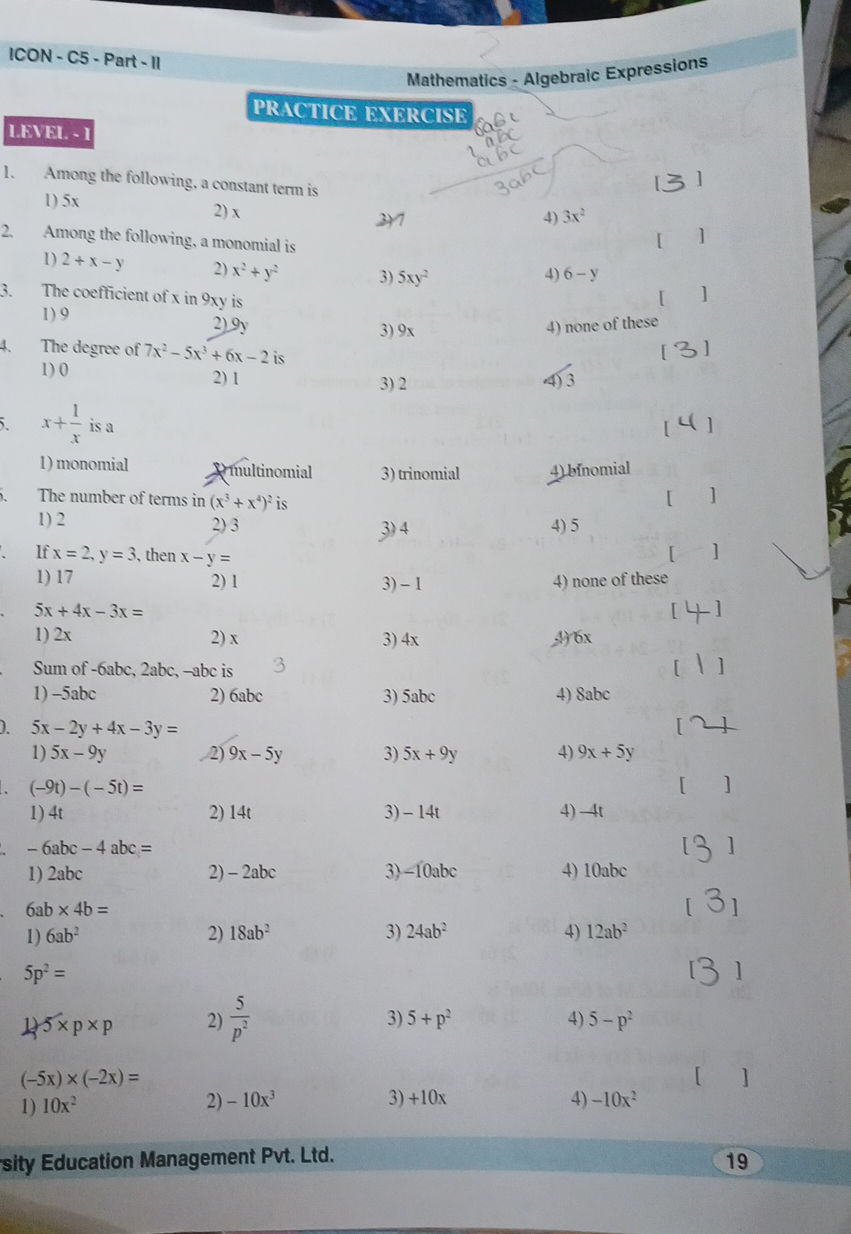 ICON - C5 - Part - II
Mathematics - Algebraic Expressions
PRACTICE EXERCISE
6abc
2abc
abc
3abc
LEVEL - I
1. Among the following, a constant term is [3]
1) 5x 2) x 3) 7 4) 3x²
2. Among the following, a monomial is [ ]
1) 2 + x – y 2) x² + y² 3) 5xy² 4) 6 – y
3. The coefficient of x in 9xy is [ ]
1) 9 2) 9y 3) 9x 4) none of these
4. The degree of 7x² – 5x³ + 6x – 2 is [3]
1) 0 2) 1 3) 2 4) 3
5. x + 1/x is a [4]
1) monomial 2) multinomial 3) trinomial 4) binomial
The number of terms in (x³ + x⁴)² is [ ]
1) 2 2) 3 3) 4 4) 5
If x = 2, y = 3, then x – y = [ ]
1) 17 2) 1 3) – 1 4) none of these
5x + 4x – 3x = [4]
1) 2x 2) x 3) 4x 4) 6x
Sum of -6abc, 2abc, –abc is 3 [1]
1) –5abc 2) 6abc 3) 5abc 4) 8abc
5x – 2y + 4x – 3y = [2]
1) 5x – 9y 2) 9x – 5y 3) 5x + 9y 4) 9x + 5y
(–9t) – ( – 5t) = [ ]
1) 4t 2) 14t 3) – 14t 4) –4t
– 6abc – 4 abc = [3]
1) 2abc 2) – 2abc 3) –10abc 4) 10abc
6ab × 4b = [3]
1) 6ab² 2) 18ab² 3) 24ab² 4) 12ab²
5p² = [3]
1) 5 × p × p 2) 5/p² 3) 5 + p² 4) 5 – p²
(–5x) × (–2x) = [ ]
1) 10x² 2) – 10x³ 3) +10x 4) –10x²
rsity Education Management Pvt. Ltd.
19